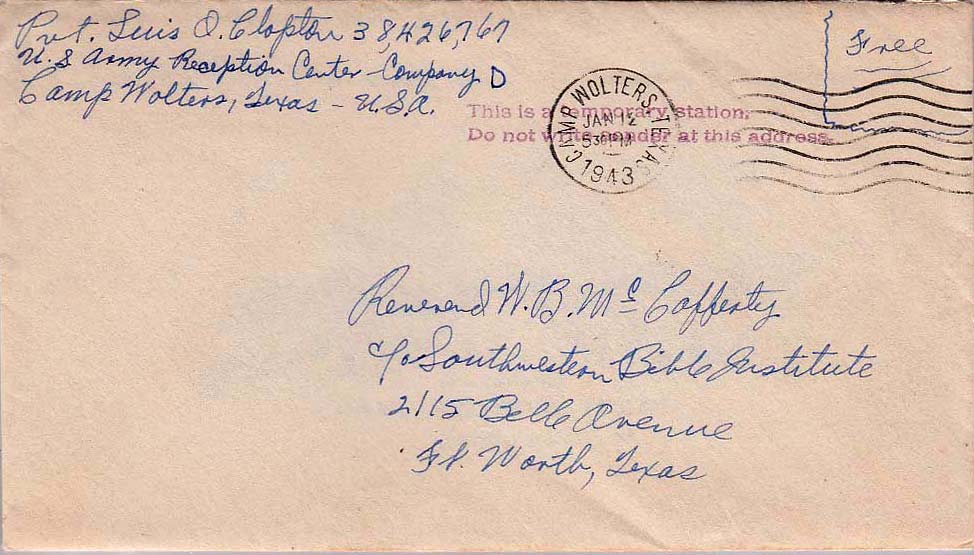 Pvt. Luis O. Clopton 38,426,767
U.S Army Reception Center - Company D
Camp Wolters, Texas - U.S.A.
Free
This is a temporary station.
Do not write sender at this address.
CAMP WOLTERS, TEXAS
JAN 12
5 30 PM
1943
Reverend W. B. Mc Cafferty
c/o Southwestern Bible Institute
2115 Belle Avenue
Ft. Worth, Texas